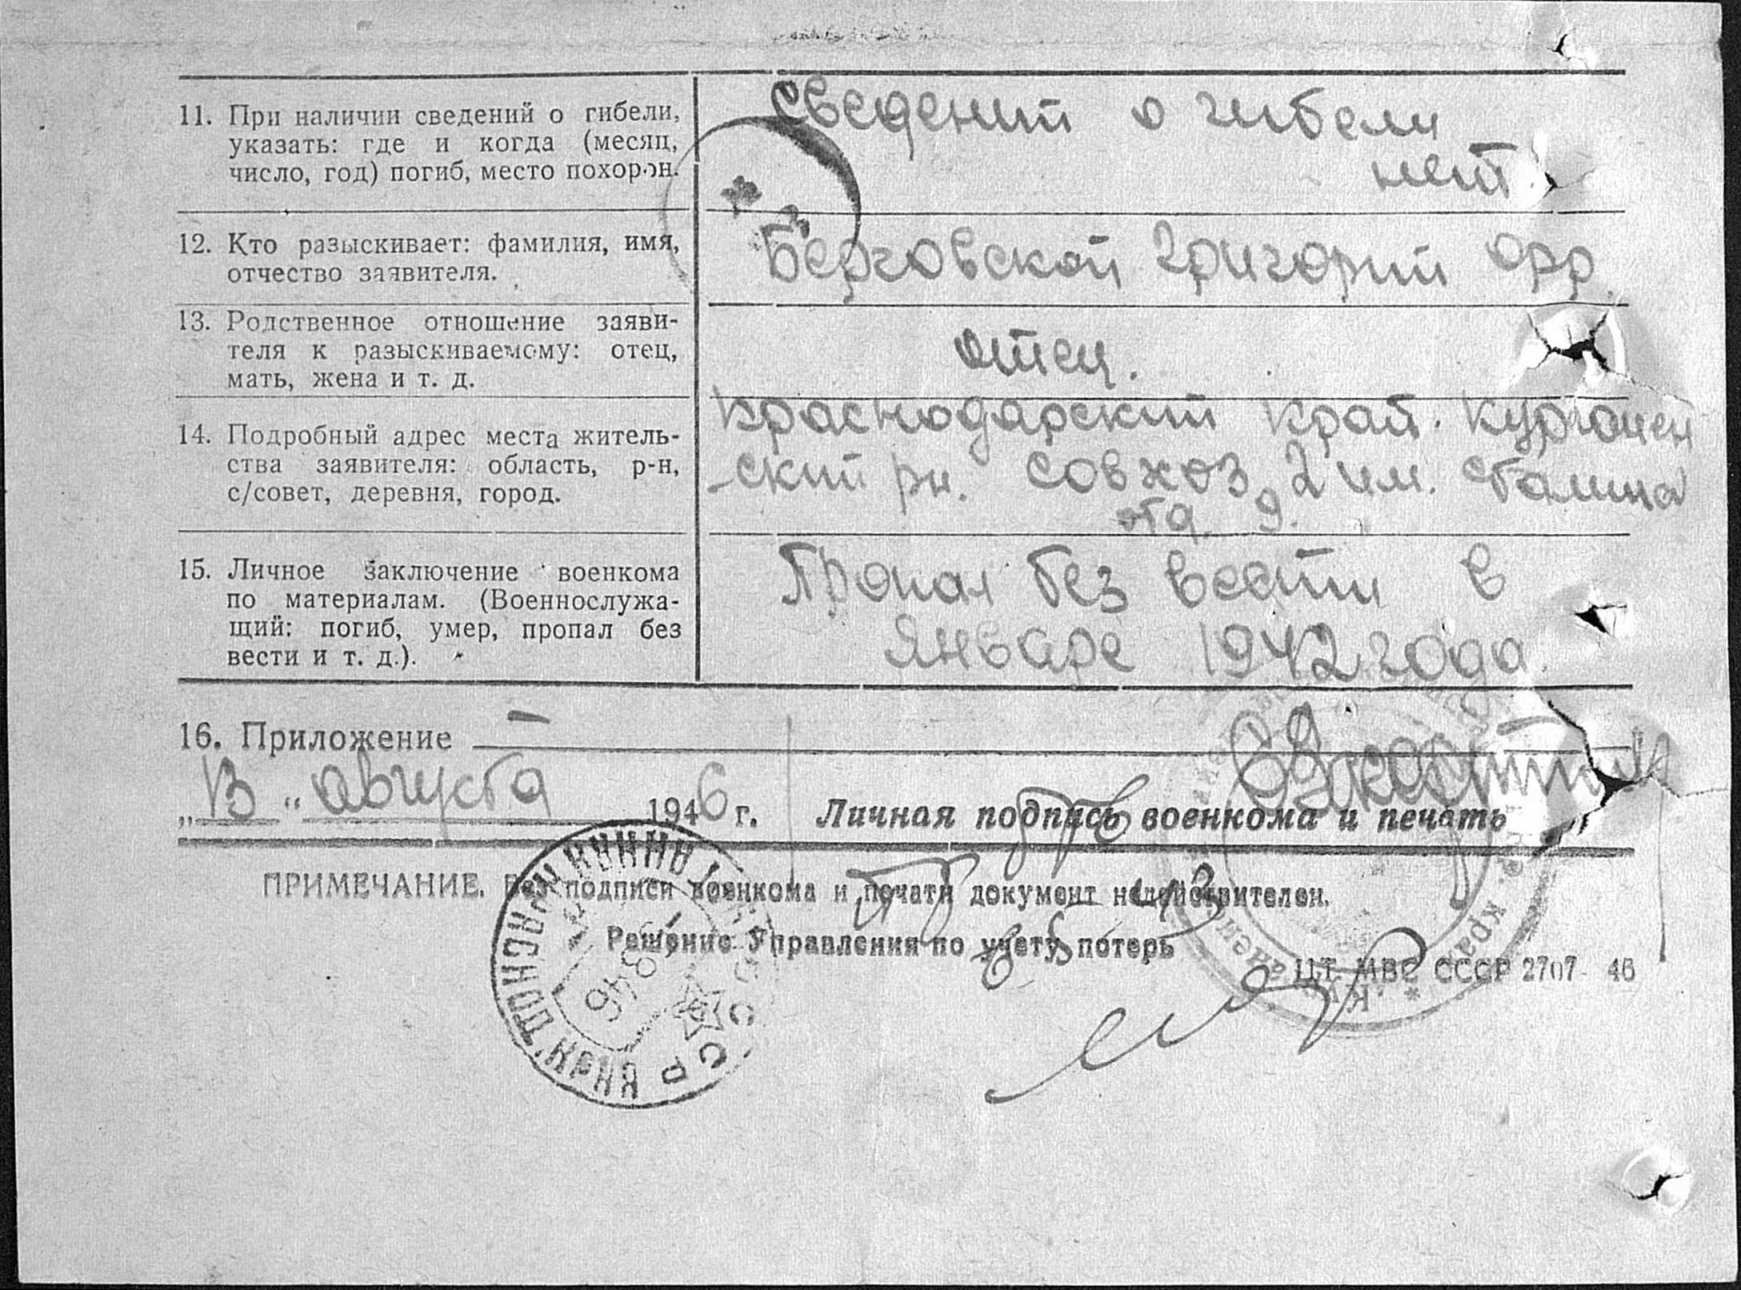 11. При наличии сведений о гибели,
указать: где и когда (месяц,
число, год) погиб, место похорон.
сведений о гибели
нет
12. Кто разыскивает: фамилия, имя,
отчество заявителя.
Берговской Григорий
13. Родственное отношение заяви-
теля к разыскиваемому: отец,
мать, жена и т. д.
отец.
14. Подробный адрес места житель-
ства заявителя: область, р-н,
с/совет, деревня, город.
Краснодарский край. Курганен
-ский рн. совхоз 2 им. Сталина
отд. 9.
15. Личное заключение военкома
по материалам. (Военнослужа-
щий: погиб, умер, пропал без
вести и т. д.).
Пропал без вести в
январе 1942 года
16. Приложение —
„13“ августа 1946 г. Личная подпись военкома и печать
ПРИМЕЧАНИЕ. Без подписи военкома и печати документ недействителен.
Решение Управления по учету потерь
ЦТ МВС СССР 2707-46